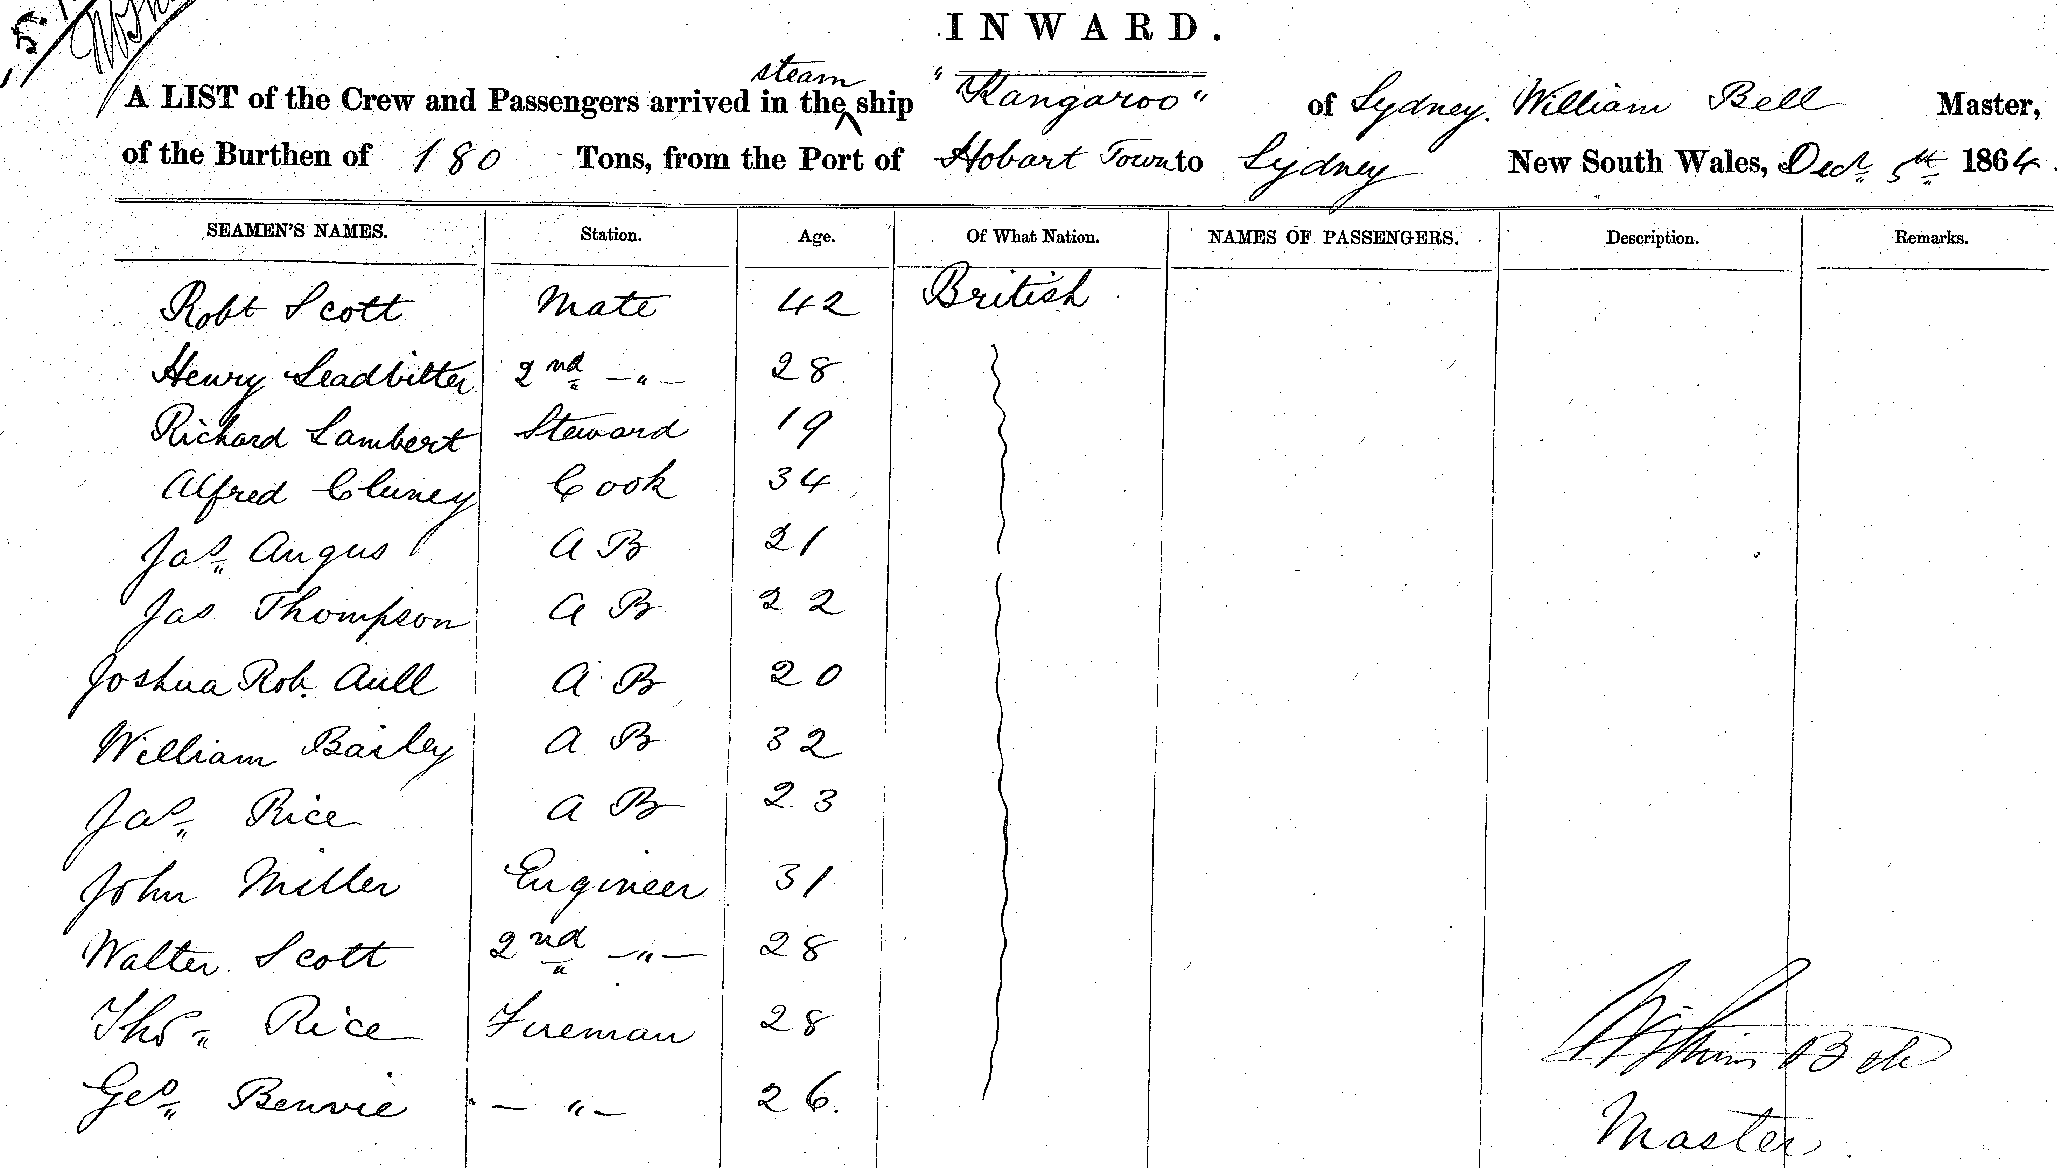 INWARD.
A LIST of the Crew and Passengers arrived in the steam ship "Kangaroo" of Sydney. William Bell Master,
of the Burthen of 180 Tons, from the Port of Hobart Town to Sydney New South Wales, Decr 5th 1864.
SEAMEN'S NAMES. Station. Age. Of What Nation. NAMES OF PASSENGERS. Description. Remarks.
Robt Scott Mate 42 British
Henry Leadbitter 2nd —"— 28
Richard Lambert Steward 19
Alfred Cluney Cook 34
Jas Angus A B 21
Jas Thompson A B 22
Joshua Rob. Aull A B 20
William Bailey A B 32
Jas Rice A B 23
John Miller Engineer 31
Walter Scott 2nd —"— 28
Thos Rice Fireman 28
Geo Benvie — "— 26.
William Bell
Master